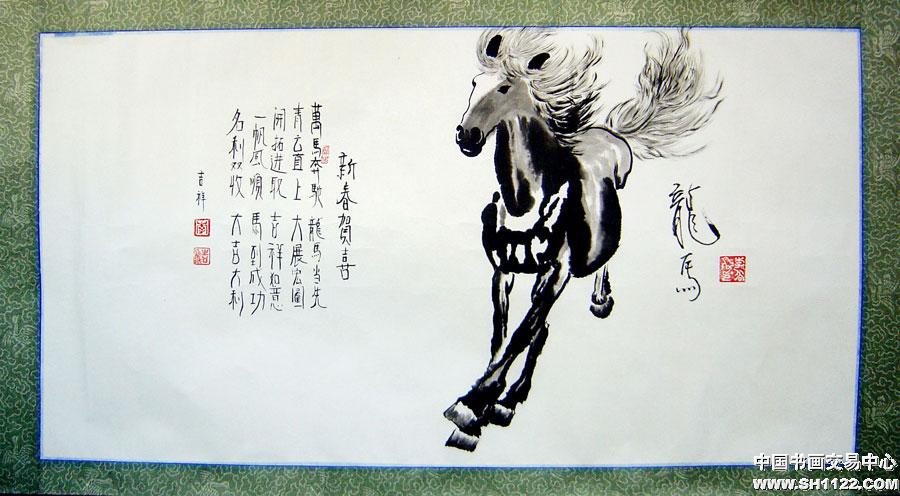 龍馬
新春賀喜
萬馬奔馳 龍馬当先
青云直上 大展宏圖
開拓進取 吉祥如意
一帆風順 馬到成功
名利双收 大喜大利
吉祥
中国书画交易中心
www.SH1122.com